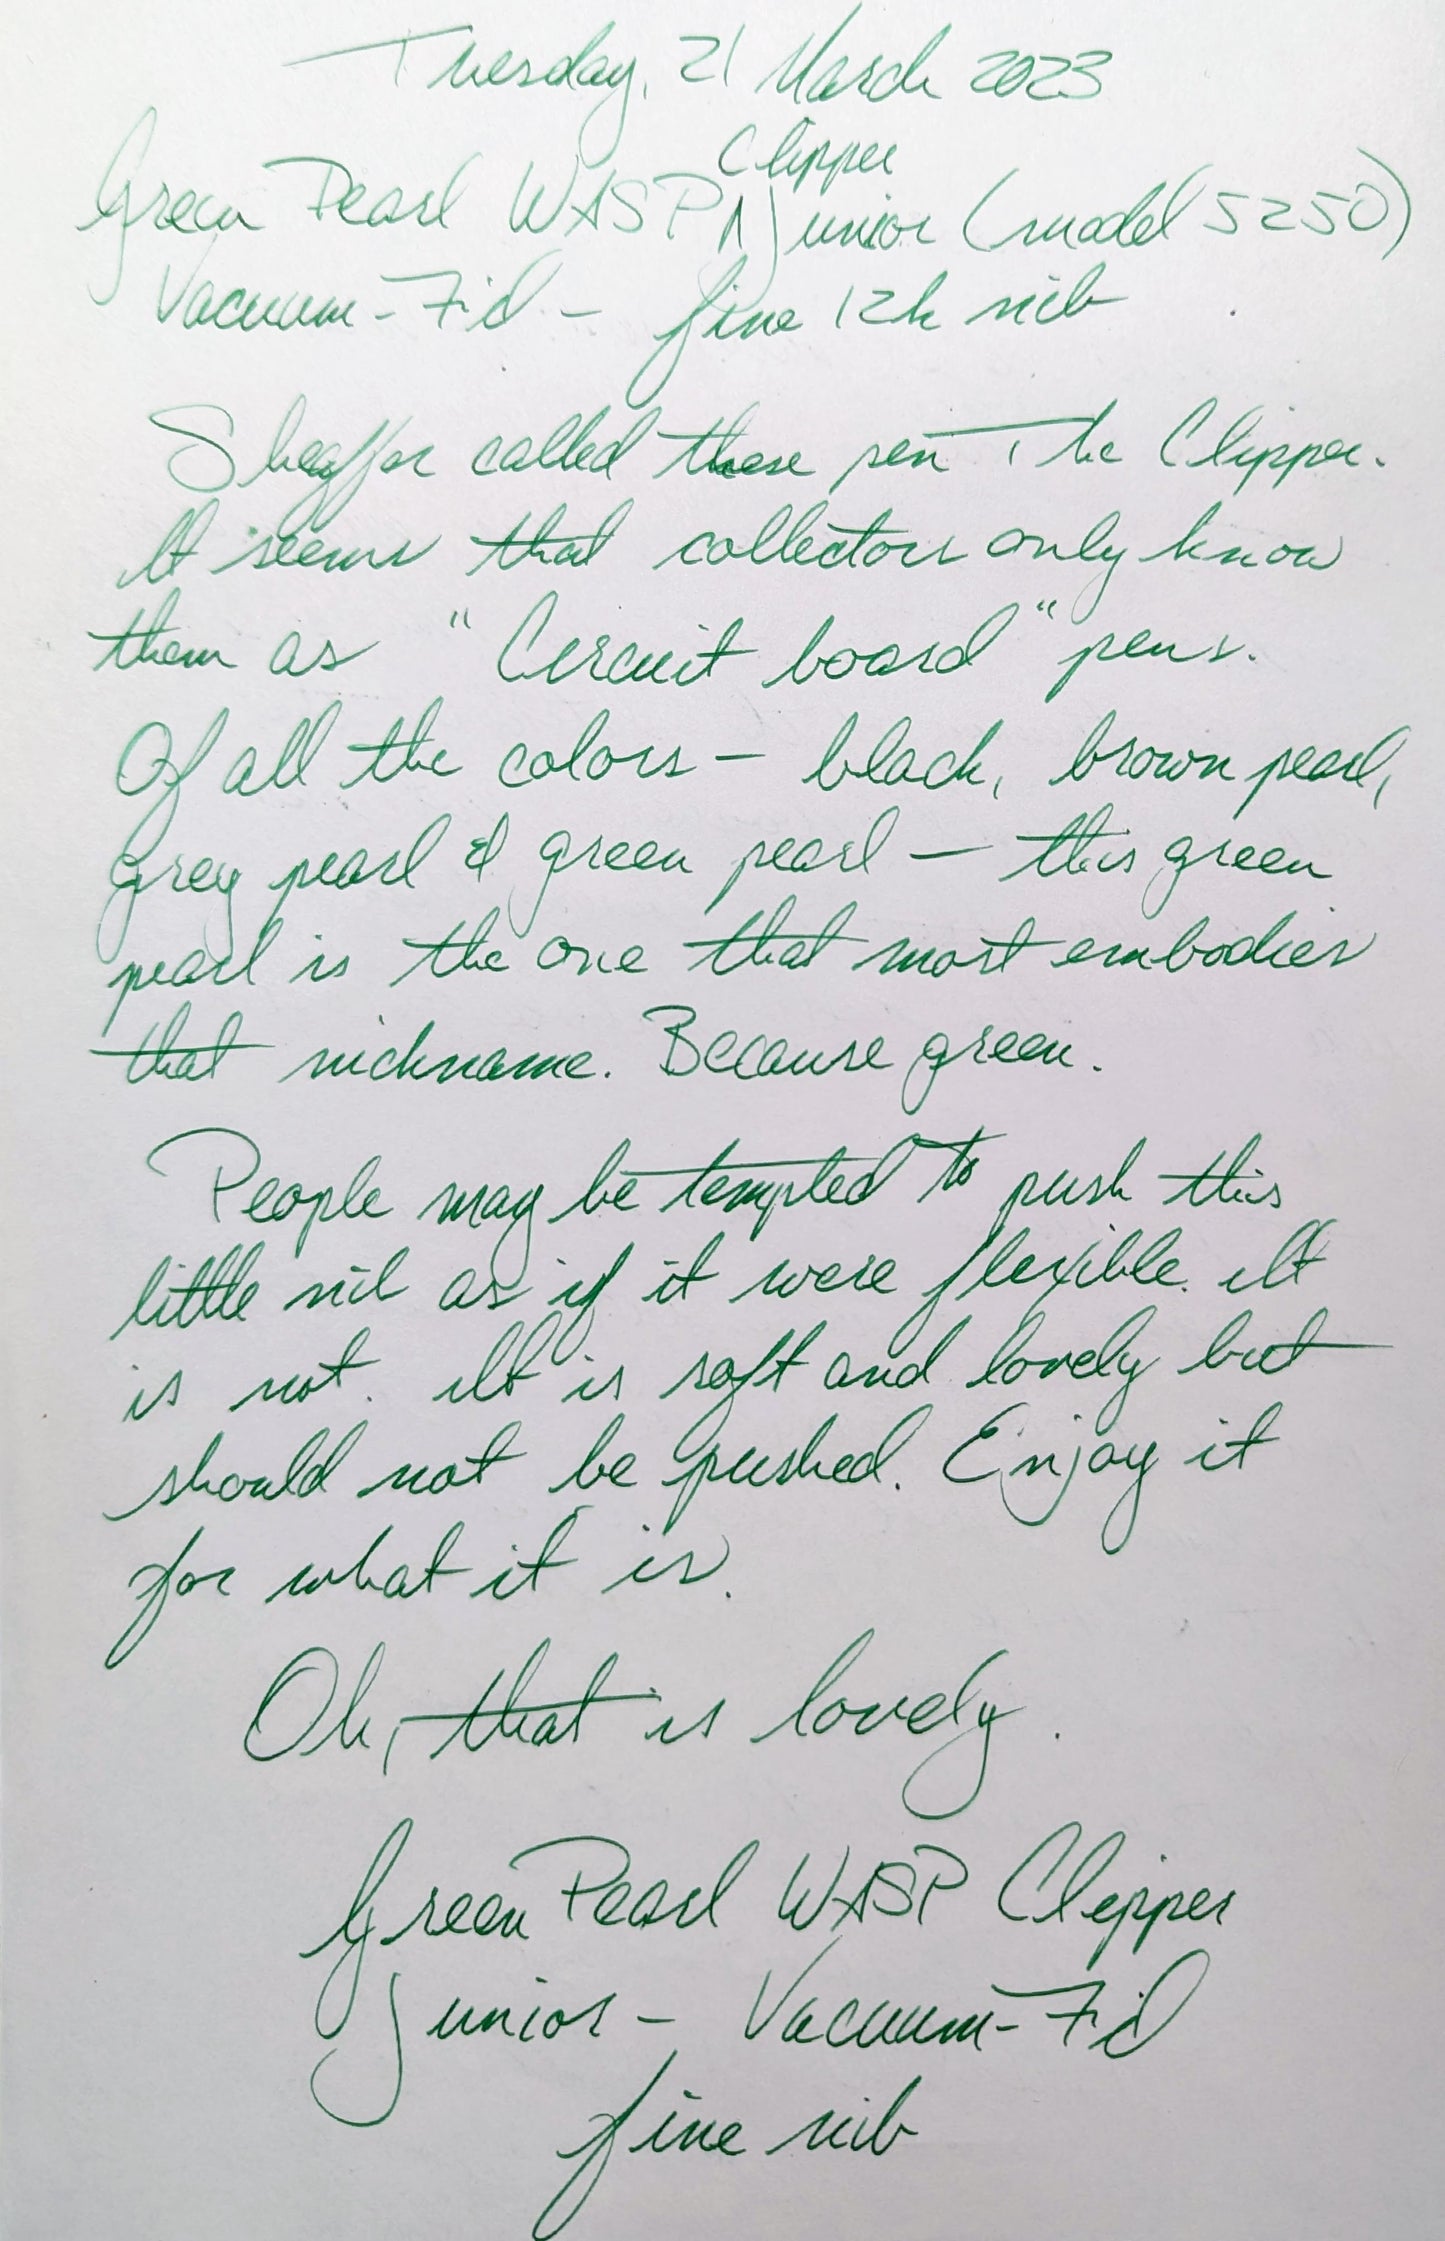 Tuesday, 21 March 2023
Clipper
Green Pearl WASP ^ Junior (model 5250)
Vacuum-Fil - fine 12k nib
Sheaffer called these pen The Clipper.
It seems that collectors only know
them as "Circuit board" pens.
Of all the colors - black, brown pearl,
Grey pearl & green pearl - this green
pearl is the one that most embodies
that nickname. Because green.
People may be tempted to push this
little nib as if it were flexible. It
is not. It is soft and lovely but
should not be pushed. Enjoy it
for what it is.
Oh, that is lovely.
Green Pearl WASP Clipper
Junior - Vacuum-Fil
fine nib